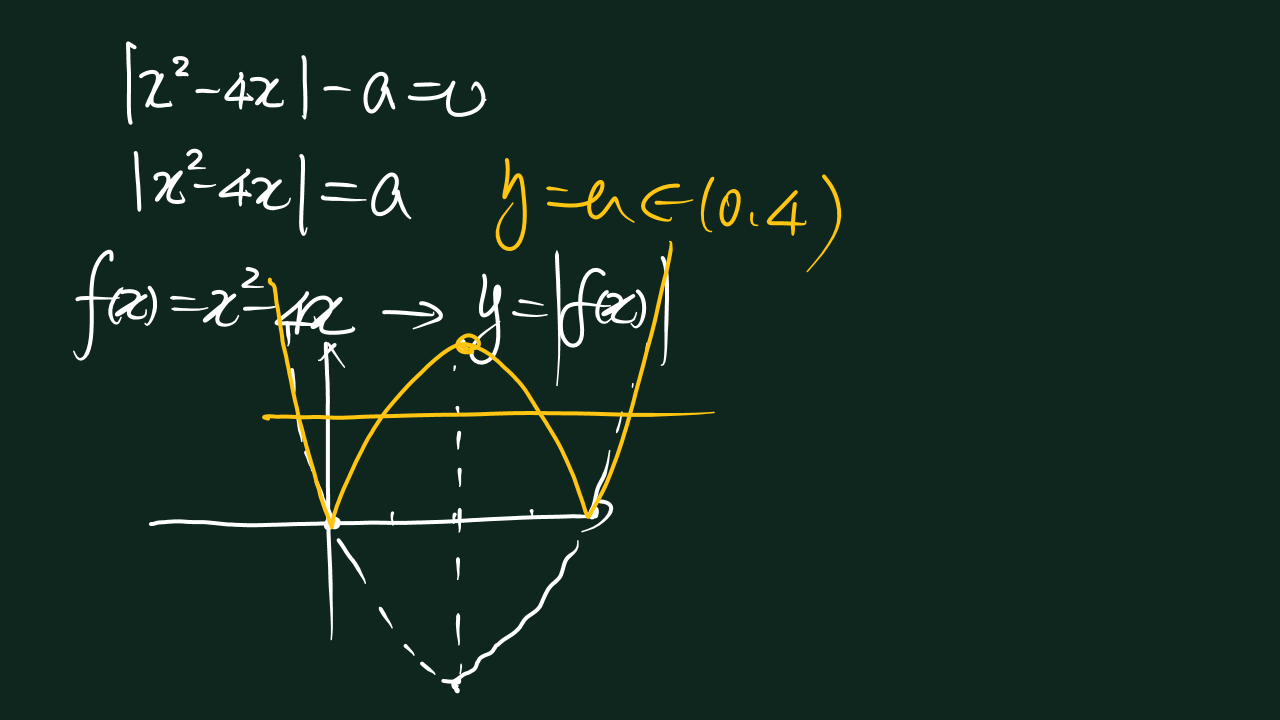 |x²-4x|-a=0
|x²-4x|=a
y=a∈(0.4)
f(x)=x²-4x → y=|f(x)|